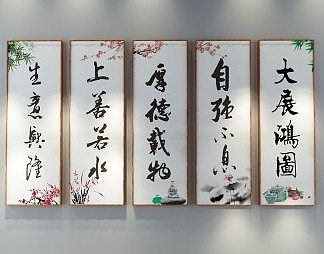 生意興隆
上善若水
厚德載物
自强不息
大展鴻圖